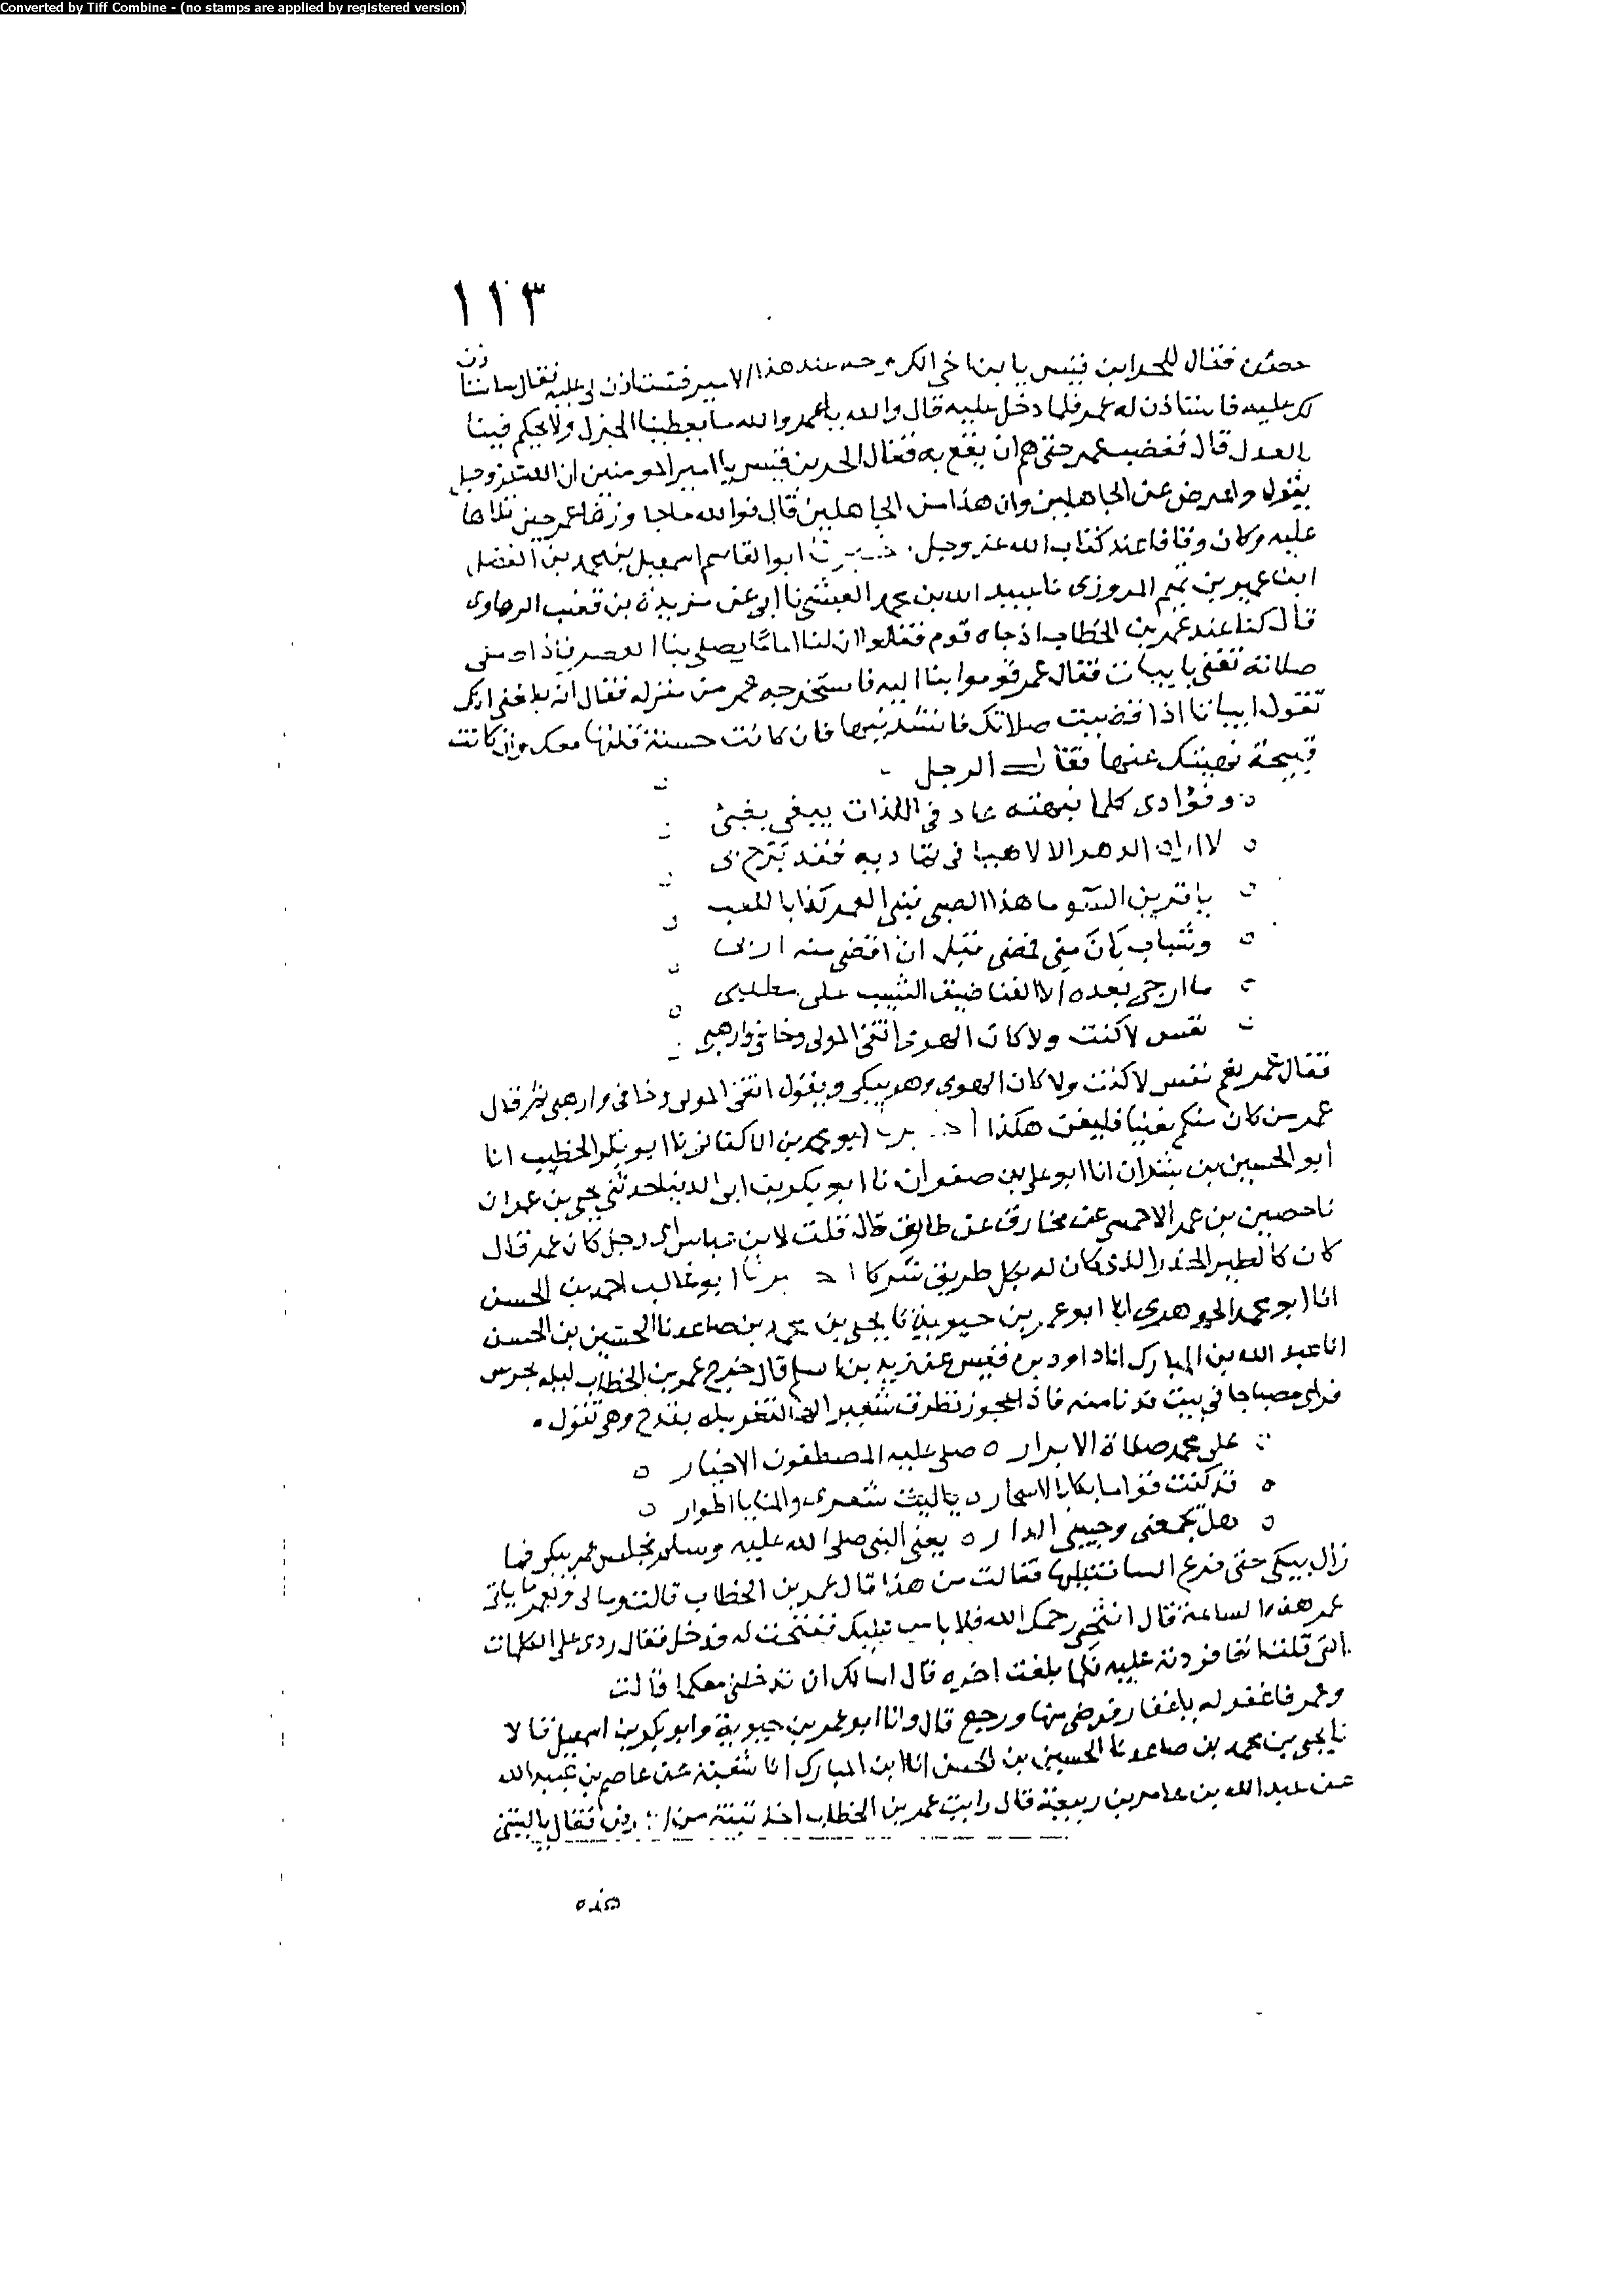 Converted by Tiff Combine - (no stamps are applied by registered version)
١١٣
حصن فقال للحر ابن قيس يا بن اخي الك وجه عند هذا الامير فتستاذن لي عليه فقال ساستاذن
لك عليه فاستاذن له عمر فلما دخل عليه قال والله يا عمر والله ما يعطينا الجزل ولا يحكم فينا
بالعدل قال فغضب عمر حتى هم ان يقع به فقال الحر بن قيس يا امير المومنين ان الله عز وجل
يقول واعرض عن الجاهلين وان هذا من الجاهلين قال فوالله ما جاوزها عمر حين تلاها
عليه وكان وقافا عند كتاب الله عز وجل ابو القاسم اسمعيل بن محمد بن الفضل
قال كنا عند عمر بن الخطاب اذ جاه قوم فقالوا ان لنا اماما يصلي بنا العصر فاذا
صلاته تغنى بابيات فقال عمر قوموا بنا اليه فاستخرجه عمر من منزله فقال انه بلغني انك
تقول ابياتا اذا قضيت صلاتك فانشدنيها فان كانت حسنة قلتها معك وان كانت
قبيحة نهيتك عنها فقال الرجل
وفؤادي كلما نبهته عاد في اللذات يبغي
لا اراه الدهر الا لاهيا في تماديه فقد برح بي
يا قرين السو ما هذا الصبي فني العمر كذا باللعب
وشباب بان مني فمضى قبل ان اقضي منه اربي
ما ارجي بعده الا الفنا ضيق الشيب علي مطلبي
نفس لا كنت ولا كان الهوى اتقي المولى وخافي وارهبي
فقال عمر نعم نفس لا كنت ولا كان الهوى وهو يبكي ويقول اتقي المولى وخافي وارهبي ثم قال
عمر من كان منكم مغنيا فليغن هكذا ابو محمد بن الاكفاني نا ابو بكر الخطيب انا
ابو الحسين بن بشران انا ابو علي بن صفوان نا ابو بكر بن ابي الدنيا حدثني يحيى بن عمران
نا حصين بن عمر الاحمسي عن مخارق عن طارق قال قلت لابن عباس اي رجل كان عمر قال
كان كالطير الحذر الذي كان له بكل طريق شركا ابو غالب احمد بن الحسن
انا ابو محمد الجوهري انا ابو عمر بن حيوية نا يحيى بن محمد بن صاعد نا الحسين بن الحسن
انا عبد الله بن المبارك انا داود بن قيس عن زيد بن اسلم قال خرج عمر بن الخطاب ليلة يحرس
فراى مصباحا في بيت فدنا منه فاذا عجوز تطرق شعيرا لها لتغزله بقدح وهي تقول
على محمد صلاة الابرار ٥ صلى عليه المصطفون الاخيار
قد كنت قواما بكا بالاسحار ٥ يا ليت شعري والمنايا اطوار
هل تجمعني وحبيبي الدار ٥ يعني النبي صلى الله عليه وسلم فجلس عمر يبكي فما
زال يبكي حتى قرع الباب عليها فقالت من هذا قال عمر بن الخطاب قالت ومالي ولعمر ما ياتي
عمر هذه الساعة قال افتحي رحمك الله فلا باس عليك ففتحت له فدخل فقال ردي علي الكلمات
التي قلت انفا فردته عليه فلما بلغت اخره قال اسالك ان تدخليني معكما قالت
وعمر فاغفر له يا غفار فرضي منها ورجع قال وانا ابو عمر بن حيوية وابو بكر بن اسمعيل قالا
نا يحيى بن محمد بن صاعد نا الحسين بن الحسن انا ابن المبارك انا شعبة عن عاصم بن عبيد الله
عن عبد الله بن عامر بن ربيعة قال رايت عمر بن الخطاب اخذ تبنة من الارض فقال يا ليتني
هذه